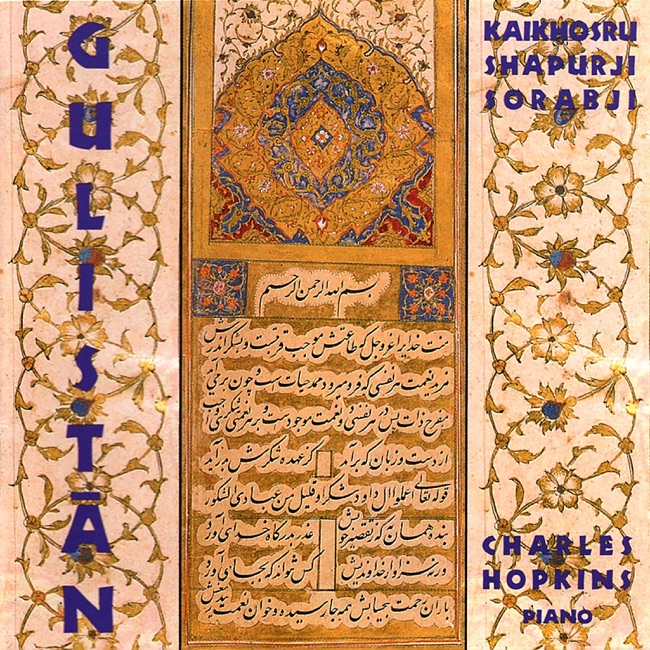 GULISTĀN
KAIKHOSRU
SHAPURJI
SORABJI
بسم الله الرحمن الرحیم
منت خدایرا عز و جل که طاعتش موجب قربتست و بشکر اندرش
مزید نعمت هر نفسی که فرو میرود ممد حیات ست و چون برمی آید
مفرح ذات پس در هر نفسی دو نعمت موجود ست و بر هر نعمتی شکری واجب
از دست و زبان که برآید کز عهده شکرش بدر آید
قوله تعالی اعملوا ال داود شکرا و قلیل من عبادی الشکور
بنده همان به که ز تقصیر خویش عذر بدرگاه خدای آورد
ورنه سزاوار خداوندیش کس نتواند که بجای آورد
باران رحمت بیحسابش همه جا رسیده و خوان نعمت بیدریغش
CHARLES
HOPKINS
PIANO